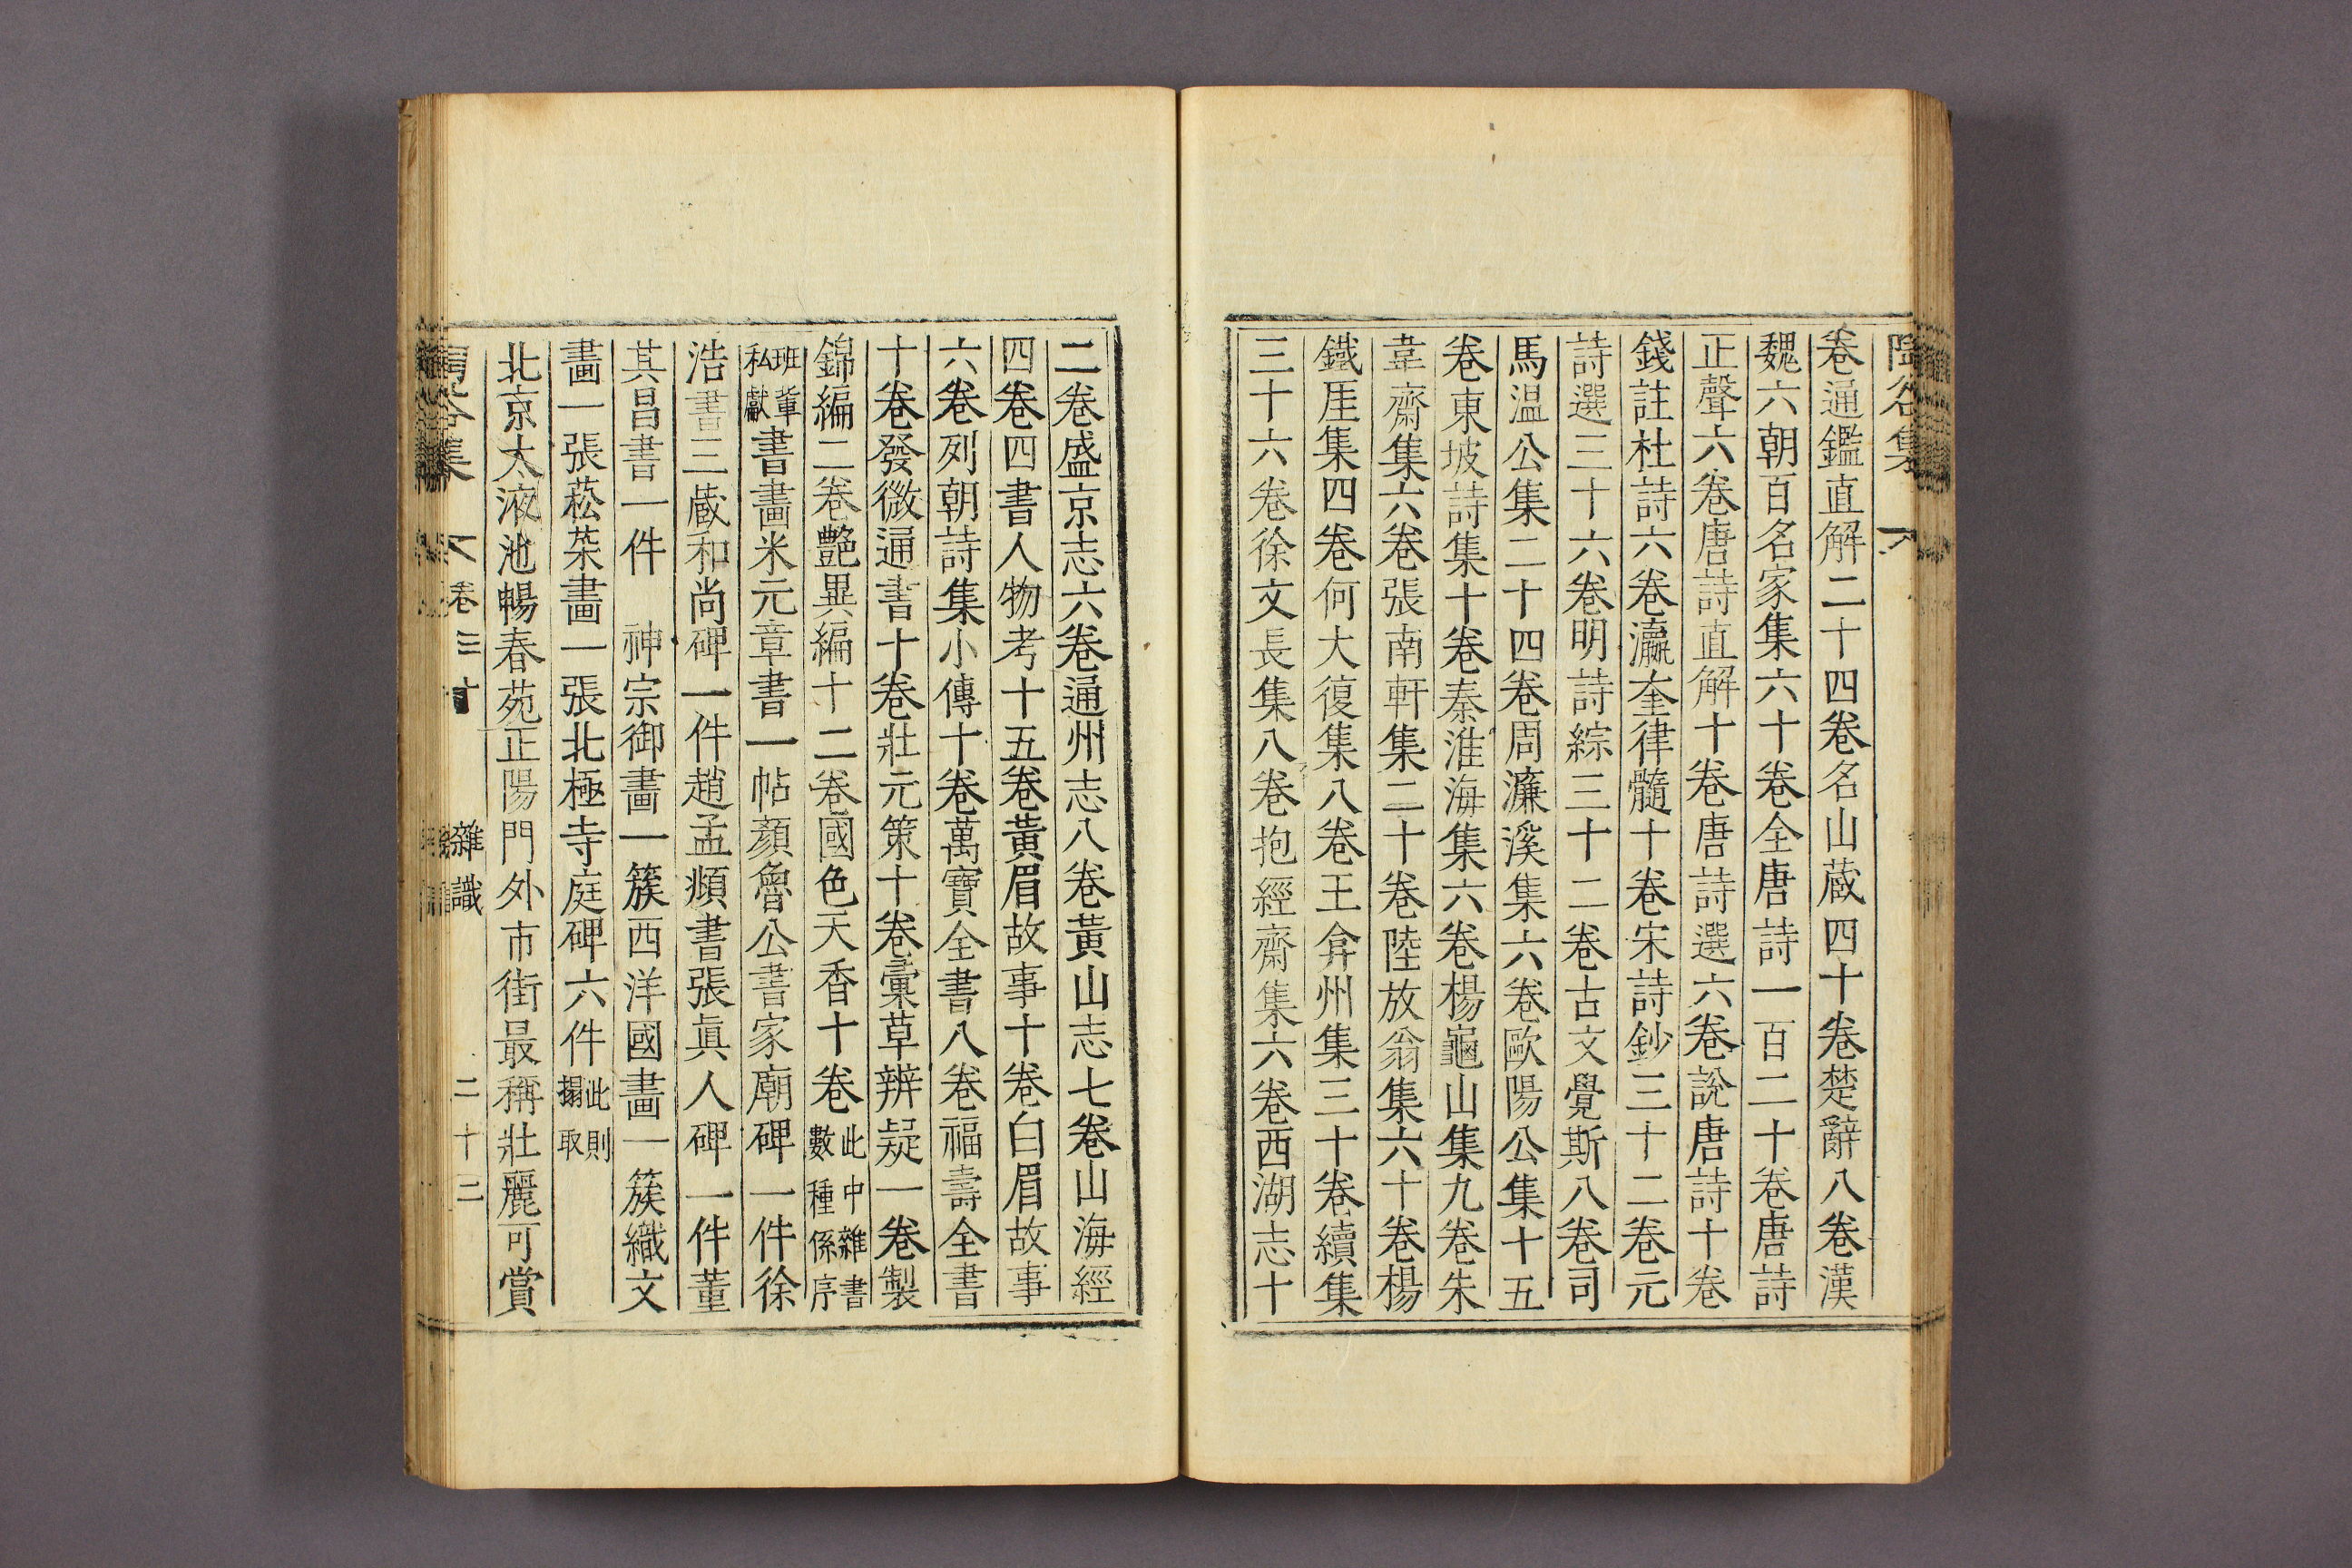 陶谷集
卷通鑑直解二十四卷名山蔵四十卷楚辭八卷漢
魏六朝百名家集六十卷全唐詩一百二十卷唐詩
正聲六卷唐詩直解十卷唐詩選六卷說唐詩十卷
錢註杜詩六卷瀛奎律髓十卷宋詩鈔三十二卷元
詩選三十六卷明詩綜三十二卷古文覺斯八卷司
馬温公集二十四卷周濂溪集六卷歐陽公集十五
卷東坡詩集十卷秦淮海集六卷楊龜山集九卷朱
韋齋集六卷張南軒集二十卷陸放翁集六十卷楊
鐵厓集四卷何大復集八卷王弇州集三十卷續集
三十六卷徐文長集八卷抱經齋集六卷西湖志十
二卷盛京志六卷通州志八卷黃山志七卷山海經
四卷四書人物考十五卷黃眉故事十卷白眉故事
六卷列朝詩集小傳十卷萬寶全書八卷福壽全書
十卷發微通書十卷壯元策十卷彙草辨疑一卷製
錦編二卷艷異編十二卷國色天香十卷此中雜書數種係序
班輩私獻書畫米元章書一帖顏魯公書家廟碑一件徐
浩書三蔵和尚碑一件趙孟頫書張眞人碑一件董
其昌書一件　神宗御畫一簇西洋國畫一簇織文
畫一張菘菜畫一張北極寺庭碑六件此則搨取
北京太液池暢春苑正陽門外市街最稱壯麗可賞
集　卷三十　雜識　二十二